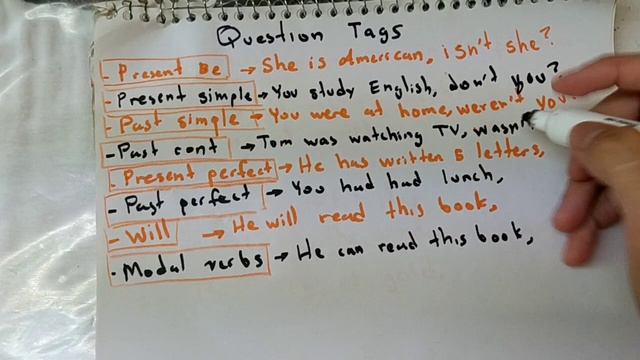 Question Tags
- Present Be → She is American, isn't she?
- Present simple → You study English, don't you?
- Past simple → You were at home, weren't you
- Past cont → Tom was watching TV, wasn't
- Present perfect → He has written 5 letters,
- Past perfect → You had had lunch,
- Will → He will read this book,
- Modal verbs → He can read this book,